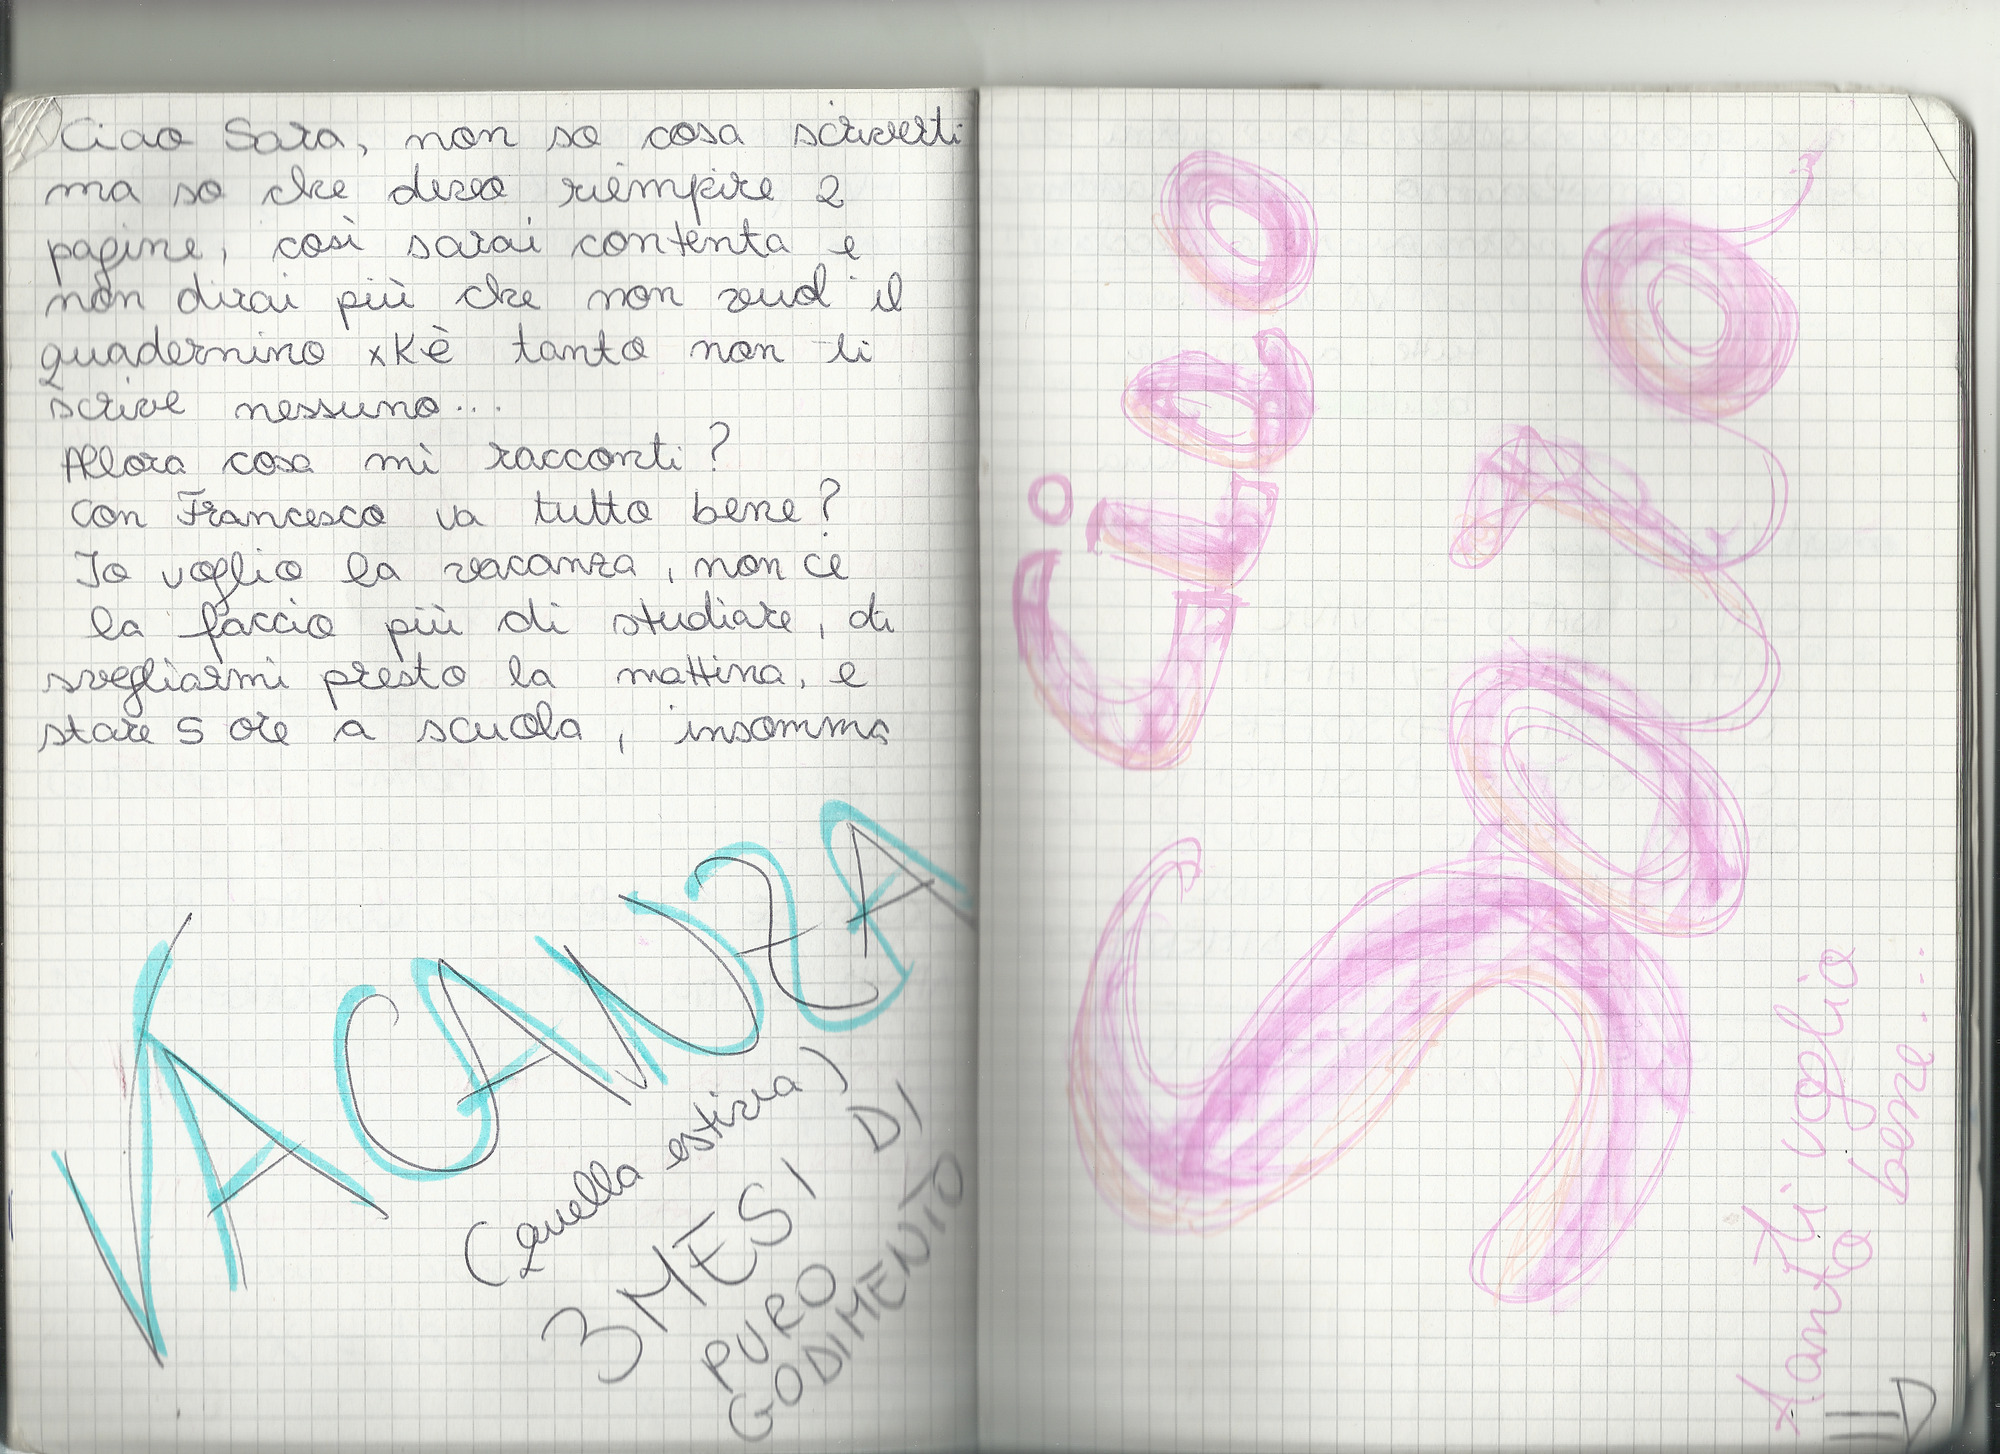 Ciao Sara, non so cosa scriverti
ma so che devo riempire 2
pagine, così sarai contenta e
non dirai più che non vuoi il
quadernino xKè tanto non ti
scrive nessuno...
Allora cosa mi racconti?
Con Francesco va tutto bene?
Io voglio la vacanza, non ce
la faccio più di studiare, di
svegliarmi presto la mattina, e
stare 5 ore a scuola, insomma
VACANZA
(quella estiva)
3 MESI DI
PURO
GODIMENTO
Ciao
Sara
Ti voglio
tanto bene...